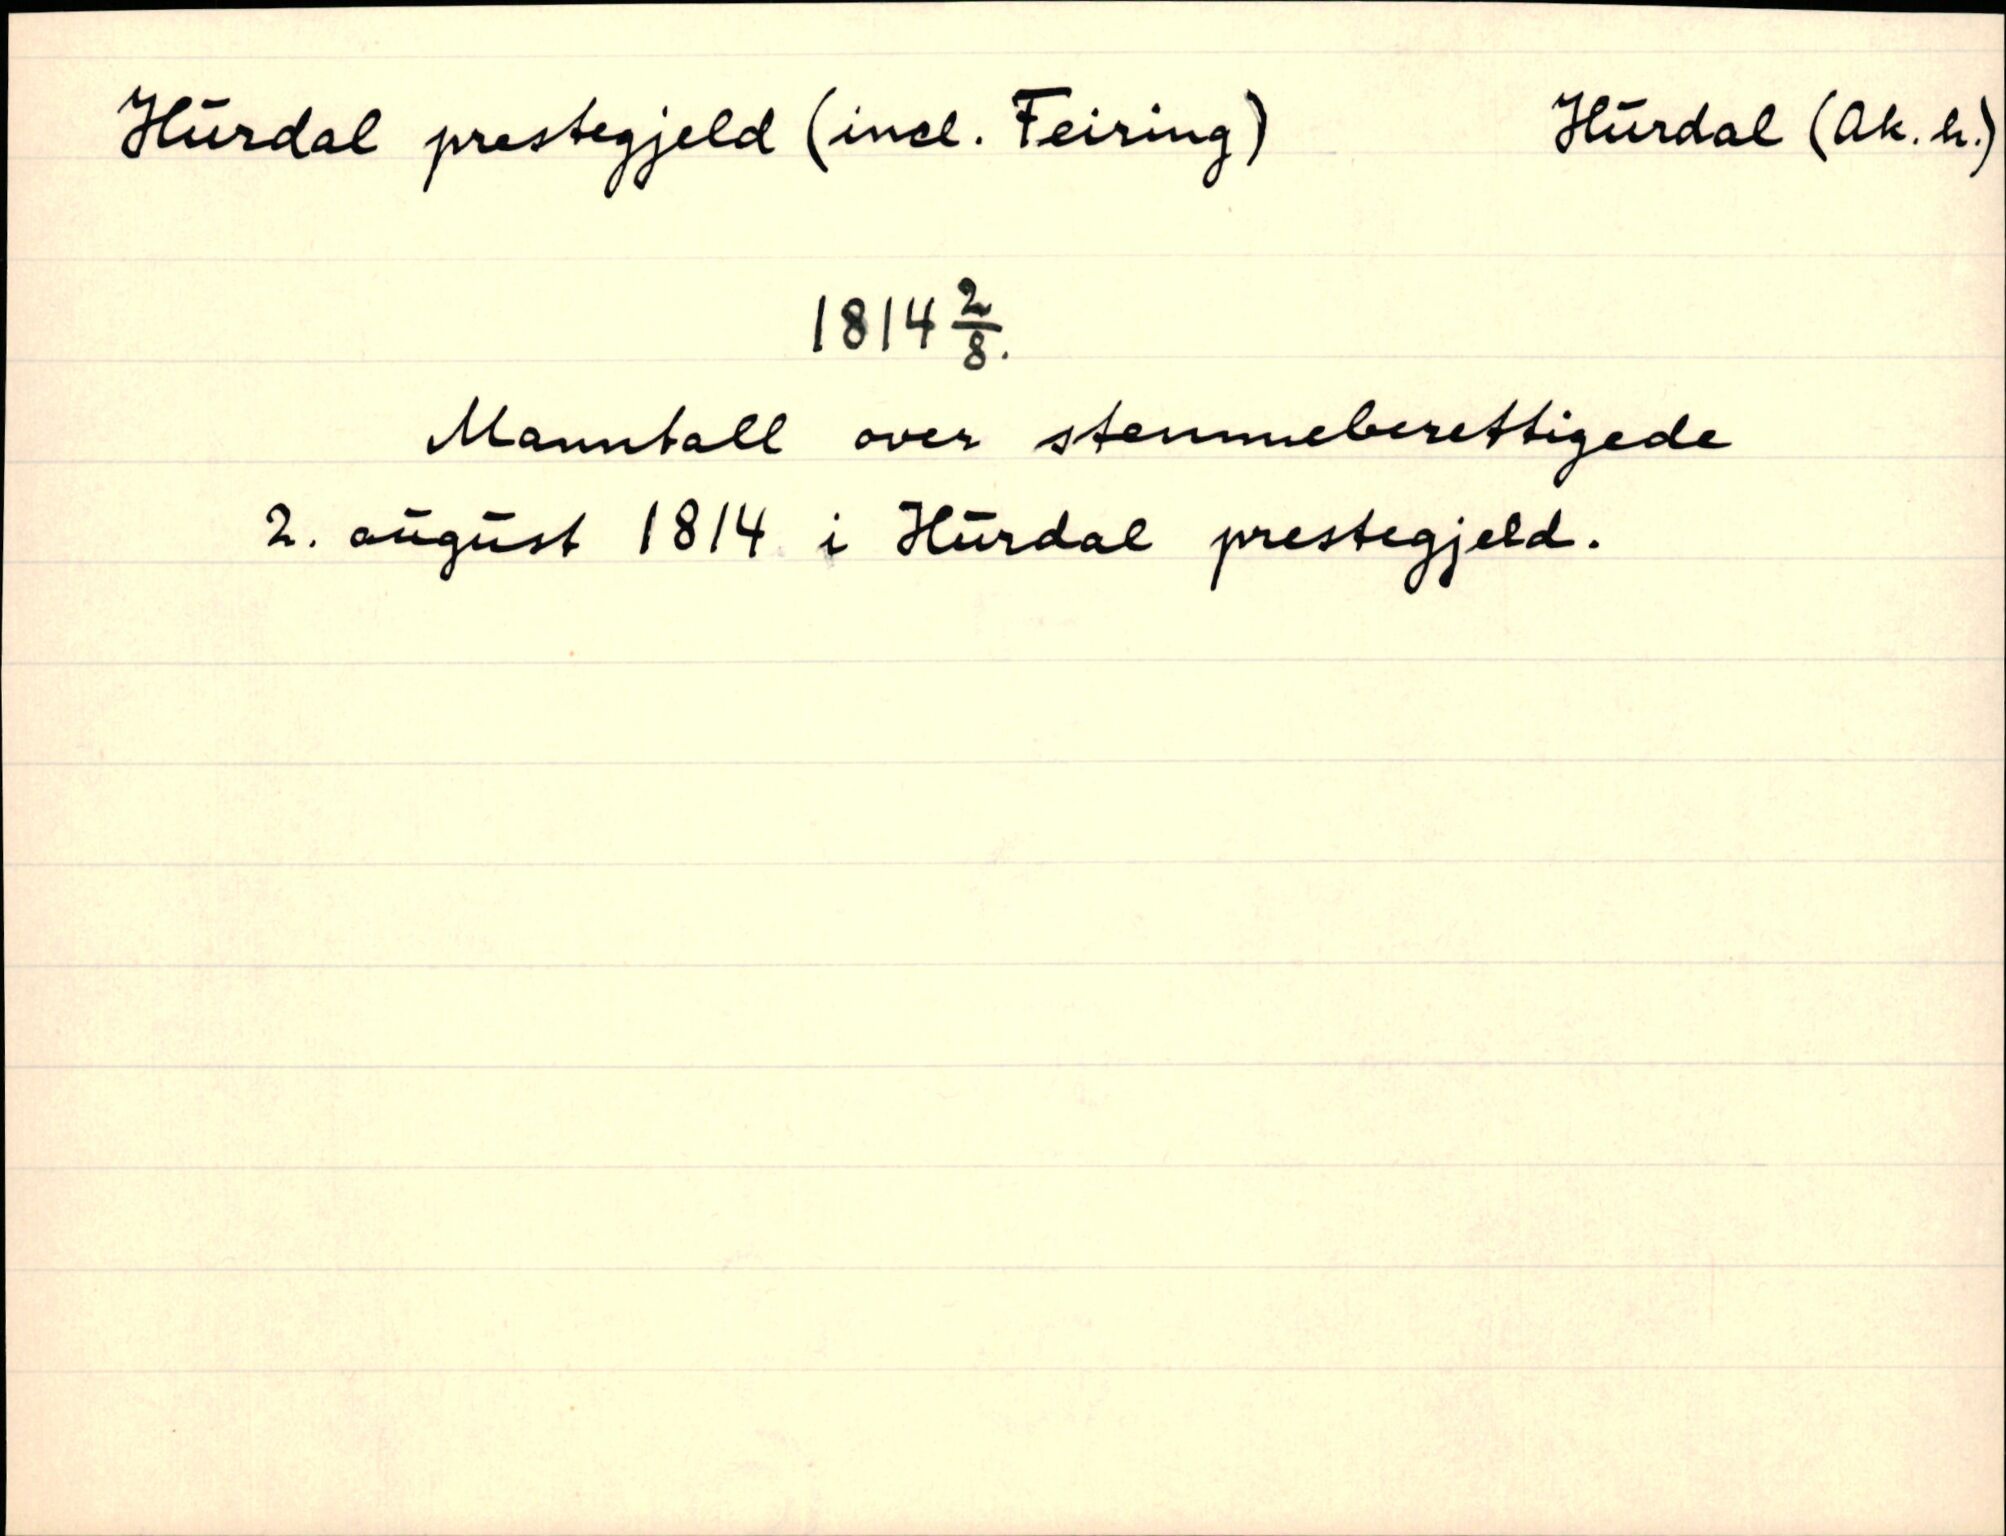 Hurdal prestegjeld (incl. Feiring) Hurdal (Ak. h.)
1814 2/8.
Manntall over stemmeberettigede
2. august 1814 i Hurdal prestegjeld.